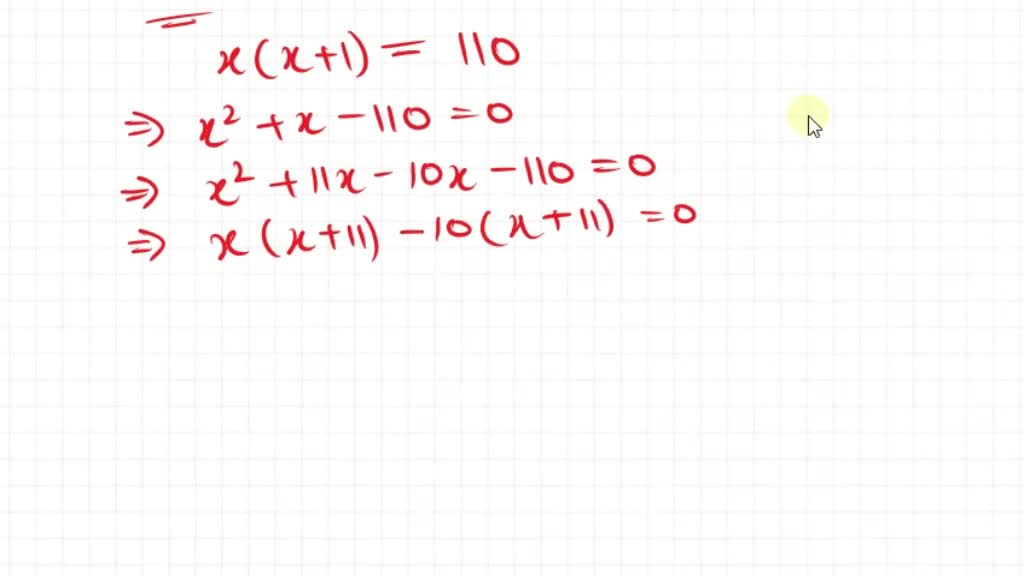 x(x+1) = 110
⇒ x² + x - 110 = 0
⇒ x² + 11x - 10x - 110 = 0
⇒ x(x+11) - 10(x+11) = 0